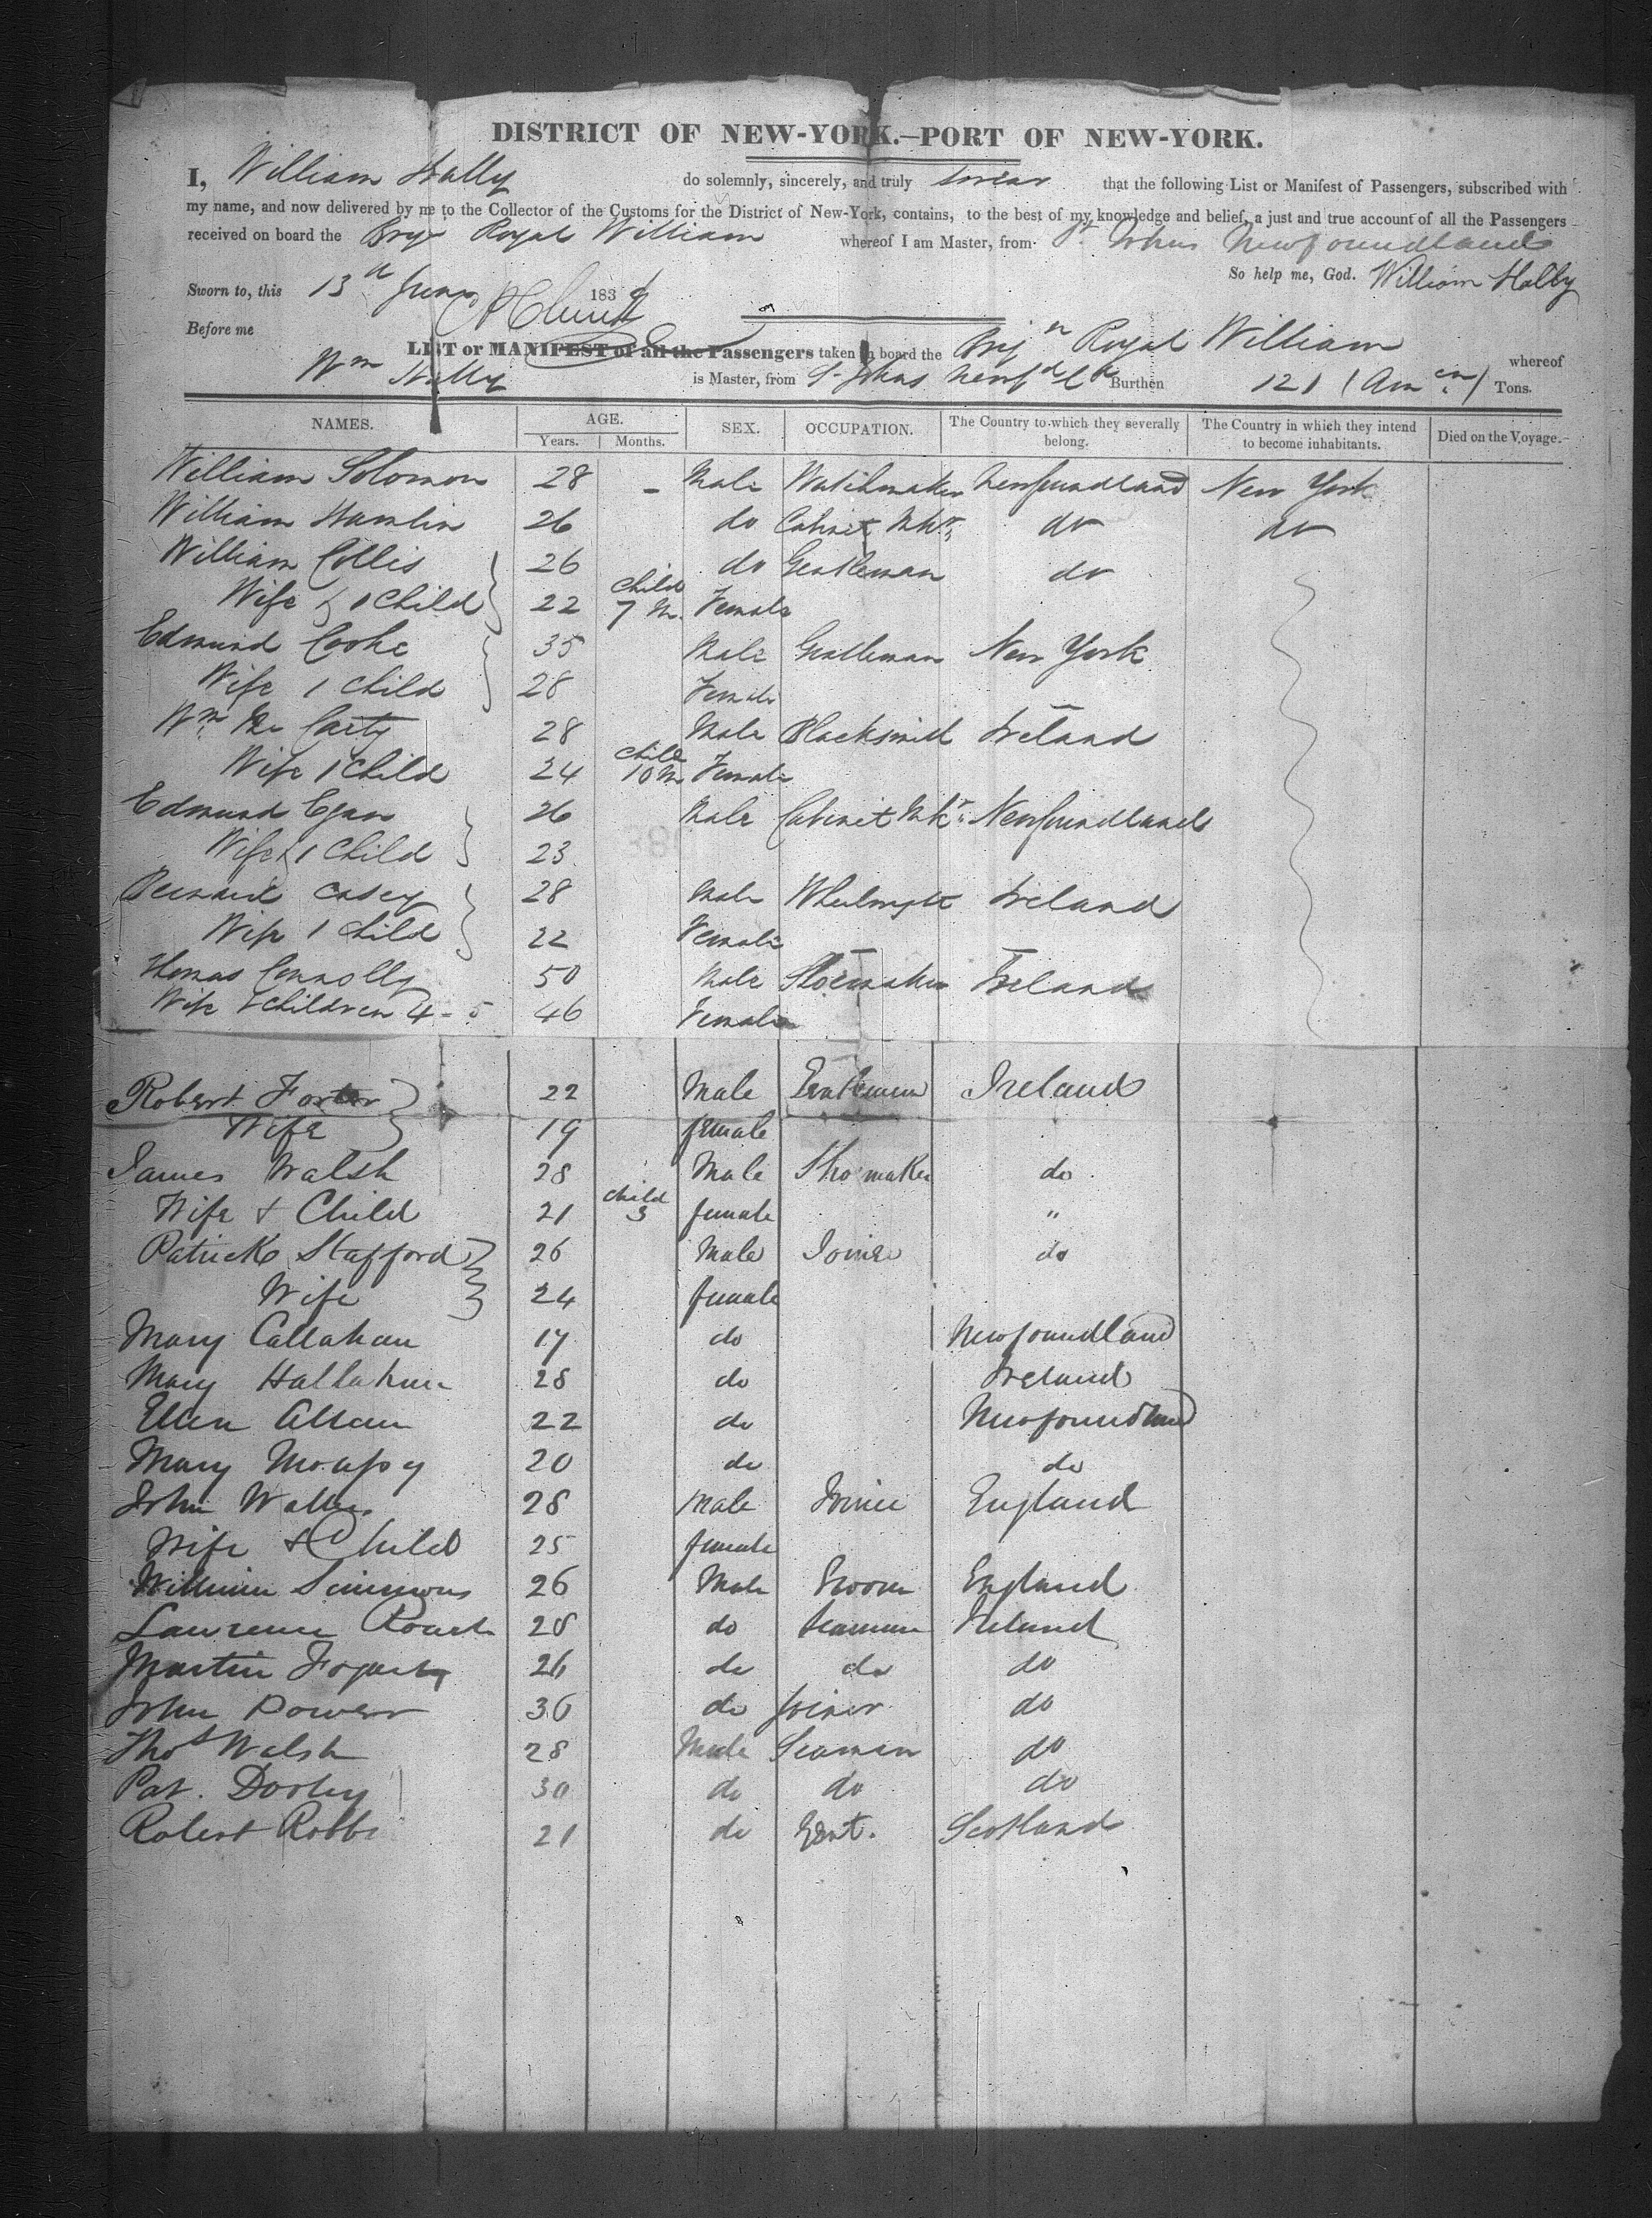 DISTRICT OF NEW-YORK.—PORT OF NEW-YORK.
I, William Hally do solemnly, sincerely, and truly swear that the following List or Manifest of Passengers, subscribed with
my name, and now delivered by me to the Collector of the Customs for the District of New-York, contains, to the best of my knowledge and belief, a just and true account of all the Passengers
received on board the Brig Royal William whereof I am Master, from St Johns Newfoundland
So help me, God. William Hally
Sworn to, this 13th June 183
Before me
LIST or MANIFEST of all the Passengers taken on board the Brign Royal William whereof
Wm Hally is Master, from St Johns Newfdld Burthen 121 (Amcn) Tons.
NAMES. AGE. SEX. OCCUPATION. The Country to which they severally belong. The Country in which they intend to become inhabitants. Died on the Voyage.
Years. Months.
William Solomon 28 - Male Watchmaker Newfoundland New York
William Hamlin 26 do Cabinet Mkr do do
William Collis 26 do Gentleman do
Wife & 1 Child 22 Child 7 M. Female
Edmund Cooke 35 Male Gentleman New York
Wife 1 Child 28 Female
Wm Mc Carty 28 Male Blacksmith Ireland
Wife 1 Child 24 Child 10 M Female
Edmund Egan 26 Male Cabinet Mkr Newfoundland
Wife & 1 Child 23
Bernard Casey 28 Male Wheelwright Ireland
Wife 1 Child 22 Female
Thomas Connolly 50 Male Shoemaker Ireland
Wife & Children 4 - 5 46 Female
Robert Foster 22 Male Gentleman Ireland
Wife 19 female
James Walsh 28 Male Shomaker do
Wife & Child 21 Child 3 female "
Patrick Stafford 26 Male Joiner do
Wife 24 female
Mary Callahan 17 do Newfoundland
Mary Hallahan 28 do Ireland
Ellen 22 do Newfoundland
Mary 20 do do
John 28 Male Joiner England
Wife & Child 25 female
William Simmons 26 Male Groom England
Lawrence 28 do Seaman Ireland
Martin Fogarty 26 do do do
John Power 36 do Joiner do
Thos Walsh 28 Male Seaman do
Pat. Dooley 30 do do do
Robert Robb 21 do Gent. Scotland